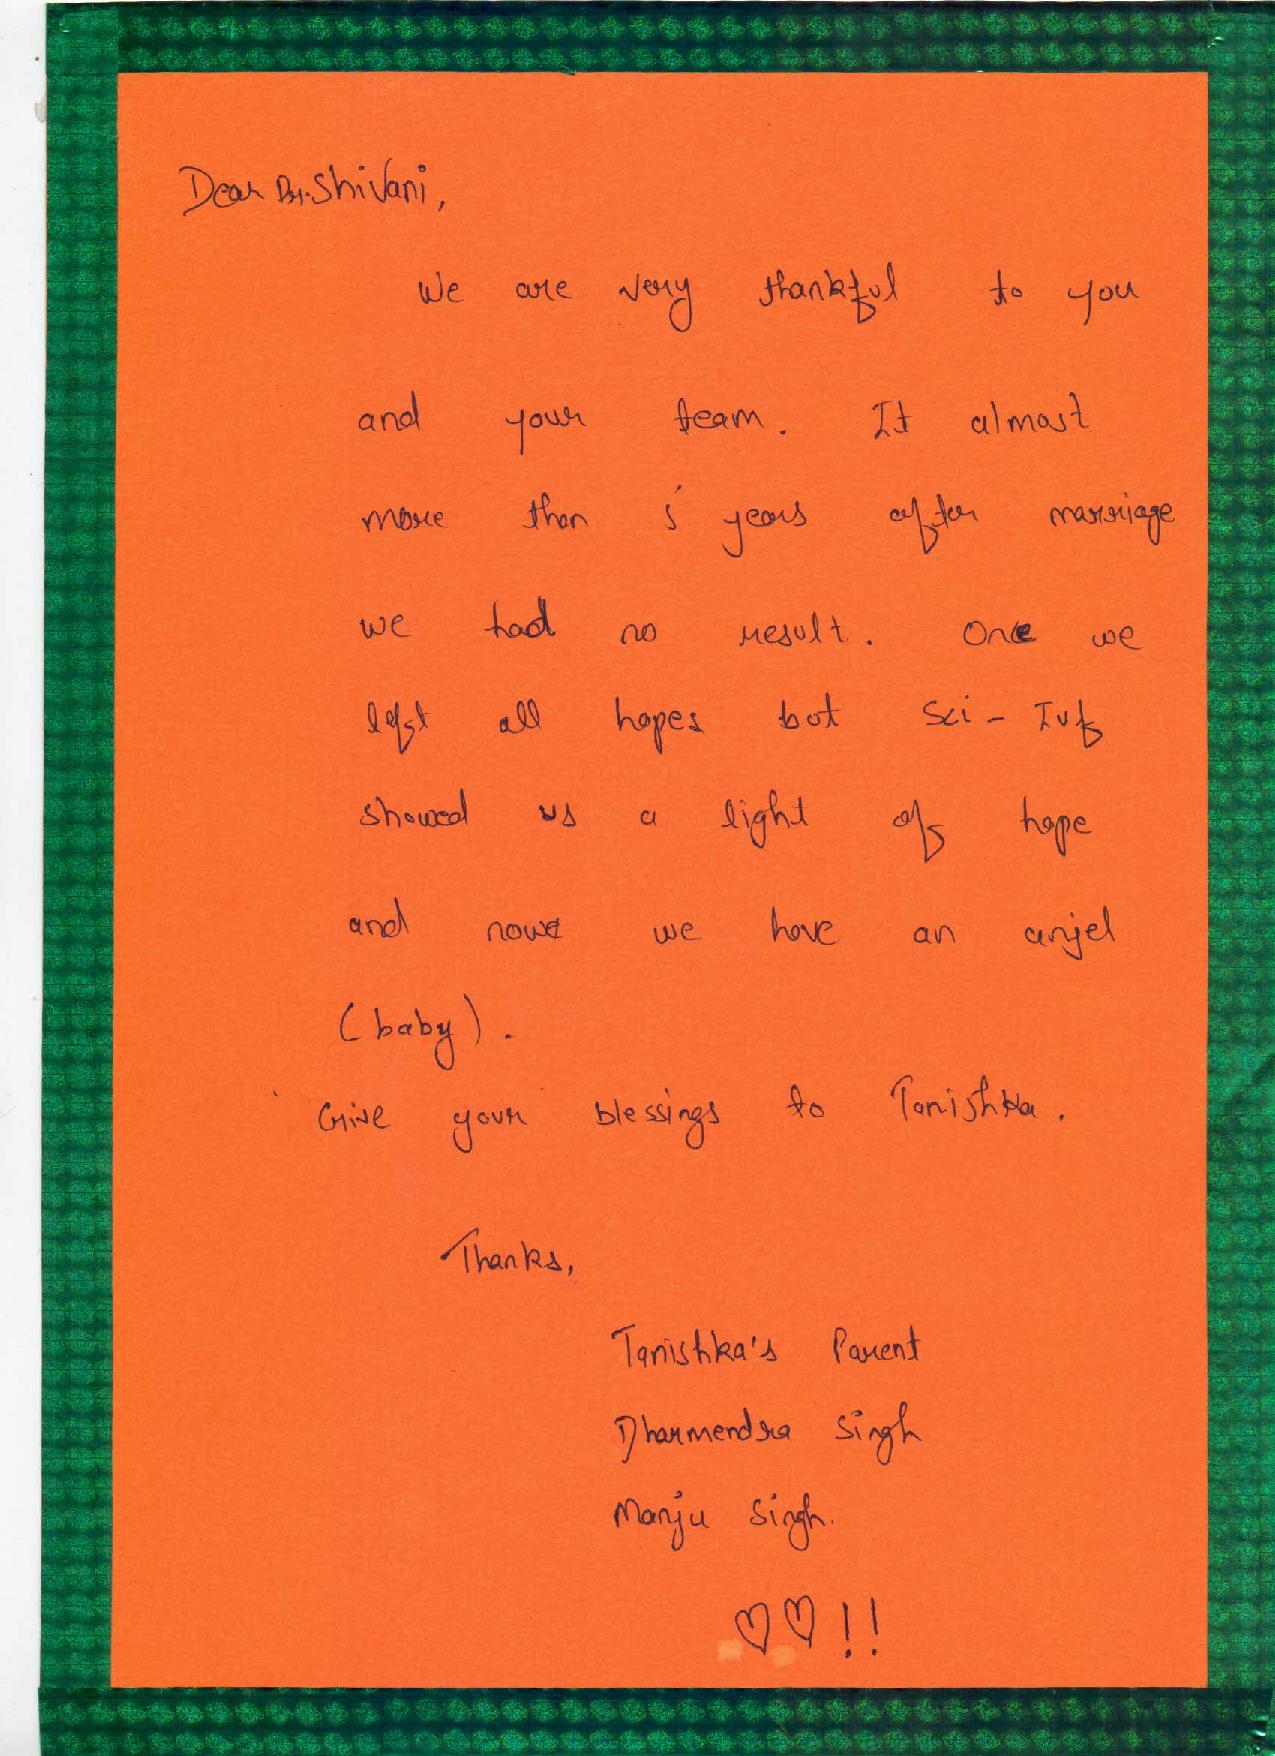 Dear Dr. Shivani,
We are very thankful to you
and your team. It almost
more than 5 years after marriage
we had no result. Once we
left all hopes but Sci - Ivf
showed us a light of hope
and nowe we have an anjel
(baby).
Give your blessings to Tanishka.
Thanks,
Tanishka's Parent
Dharmendra Singh
Manju Singh.
♡♡!!